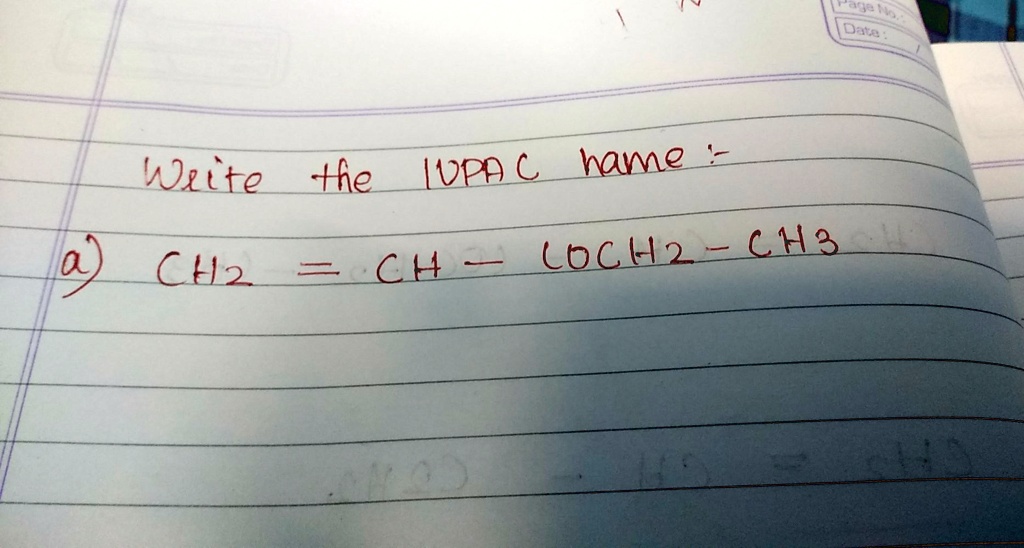 Page No.:
Date:
Write the IUPAC name :-
a) CH2 = CH - COCH2 - CH3